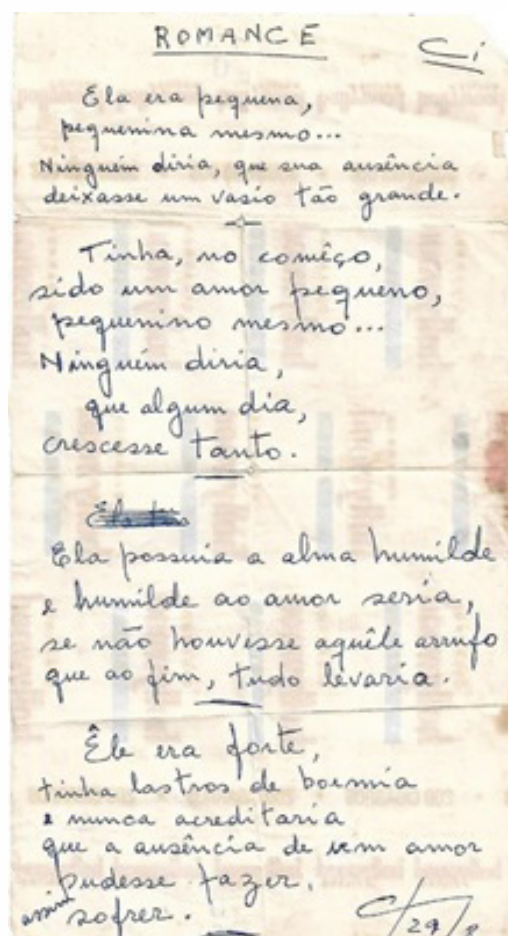 ROMANCE
Ela era pequena,
pequenina mesmo...
Ninguém diria, que sua ausência
deixasse um vasio tão grande.
Tinha, no comêço,
sido um amor pequeno,
pequenino mesmo...
Ninguém diria,
que algum dia,
crescesse tanto.
Ela possuia a alma humilde
e humilde ao amor seria,
se não houvesse aquêle arrufo
que ao fim, tudo levaria.
Êle era forte,
tinha lastros de boemia
e nunca acreditaria
que a ausência de um amor
pudesse fazer,
assim sofrer.
29/